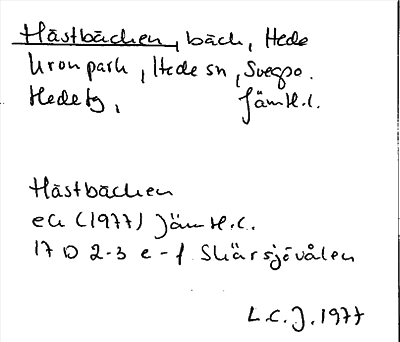 Hästbäcken, bäck, Hede
kronpark, Hede sn, Svegso.
Hede tg, Jämt.l.
Hästbäcken
ek (1977) Jämt.l.
17 D 2-3 e-f Skärsjövålen
L.C.J. 1977